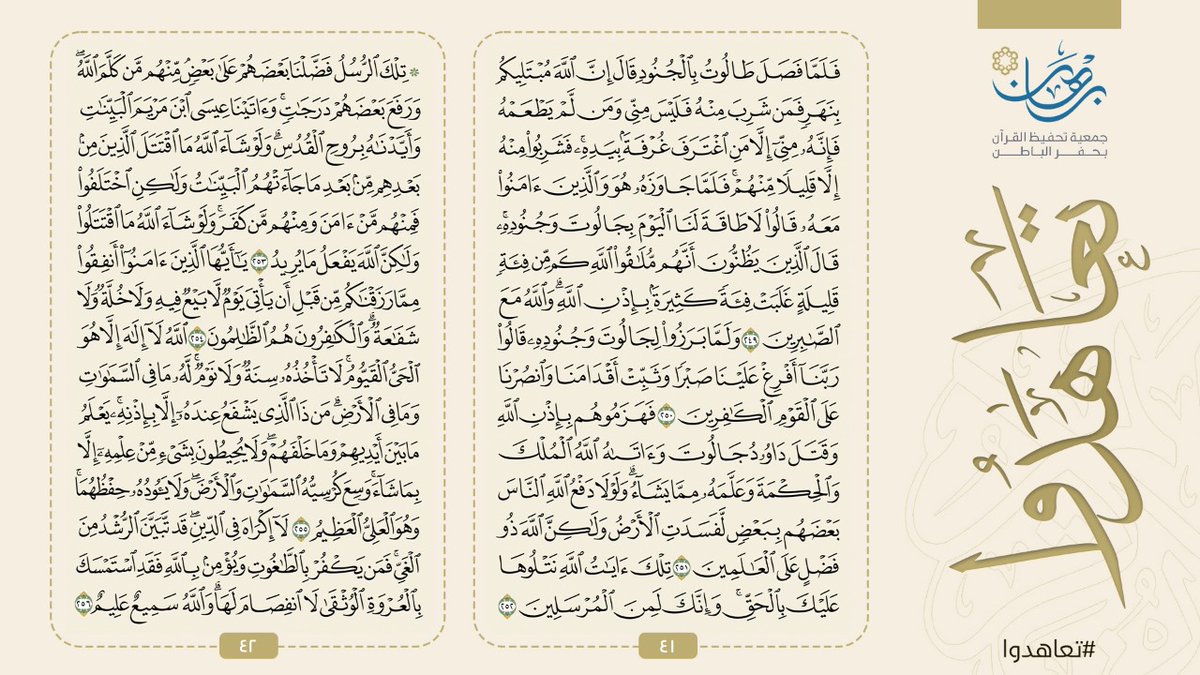 برهان
جمعية تحفيظ القرآن
بحفر الباطن
تعاهدوا
#تعاهدوا
فَلَمَّا فَصَلَ طَالُوتُ بِٱلْجُنُودِ قَالَ إِنَّ ٱللَّهَ مُبْتَلِيكُم
بِنَهَرٍ فَمَن شَرِبَ مِنْهُ فَلَيْسَ مِنِّي وَمَن لَّمْ يَطْعَمْهُ
فَإِنَّهُۥ مِنِّيٓ إِلَّا مَنِ ٱغْتَرَفَ غُرْفَةَۢ بِيَدِهِۦۚ فَشَرِبُوا۟ مِنْهُ
إِلَّا قَلِيلًا مِّنْهُمْۚ فَلَمَّا جَاوَزَهُۥ هُوَ وَٱلَّذِينَ ءَامَنُوا۟
مَعَهُۥ قَالُوا۟ لَا طَاقَةَ لَنَا ٱلْيَوْمَ بِجَالُوتَ وَجُنُودِهِۦۚ
قَالَ ٱلَّذِينَ يَظُنُّونَ أَنَّهُم مُّلَٰقُوا۟ ٱللَّهِ كَم مِّن فِئَةٍ
قَلِيلَةٍ غَلَبَتْ فِئَةً كَثِيرَةَۢ بِإِذْنِ ٱللَّهِۗ وَٱللَّهُ مَعَ
ٱلصَّٰبِرِينَ ٢٤٩ وَلَمَّا بَرَزُوا۟ لِجَالُوتَ وَجُنُودِهِۦ قَالُوا۟
رَبَّنَآ أَفْرِغْ عَلَيْنَا صَبْرًا وَثَبِّتْ أَقْدَامَنَا وَٱنصُرْنَا
عَلَى ٱلْقَوْمِ ٱلْكَٰفِرِينَ ٢٥٠ فَهَزَمُوهُم بِإِذْنِ ٱللَّهِ
وَقَتَلَ دَاوُۥدُ جَالُوتَ وَءَاتَىٰهُ ٱللَّهُ ٱلْمُلْكَ
وَٱلْحِكْمَةَ وَعَلَّمَهُۥ مِمَّا يَشَآءُۗ وَلَوْلَا دَفْعُ ٱللَّهِ ٱلنَّاسَ
بَعْضَهُم بِبَعْضٍ لَّفَسَدَتِ ٱلْأَرْضُ وَلَٰكِنَّ ٱللَّهَ ذُو
فَضْلٍ عَلَى ٱلْعَٰلَمِينَ ٢٥١ تِلْكَ ءَايَٰتُ ٱللَّهِ نَتْلُوهَا
عَلَيْكَ بِٱلْحَقِّۚ وَإِنَّكَ لَمِنَ ٱلْمُرْسَلِينَ ٢٥٢
٤١
۞ تِلْكَ ٱلرُّسُلُ فَضَّلْنَا بَعْضَهُمْ عَلَىٰ بَعْضٍۘ مِّنْهُم مَّن كَلَّمَ ٱللَّهُۖ
وَرَفَعَ بَعْضَهُمْ دَرَجَٰتٍۚ وَءَاتَيْنَا عِيسَى ٱبْنَ مَرْيَمَ ٱلْبَيِّنَٰتِ
وَأَيَّدْنَٰهُ بِرُوحِ ٱلْقُدُسِۗ وَلَوْ شَآءَ ٱللَّهُ مَا ٱقْتَتَلَ ٱلَّذِينَ مِنۢ
بَعْدِهِم مِّنۢ بَعْدِ مَا جَآءَتْهُمُ ٱلْبَيِّنَٰتُ وَلَٰكِنِ ٱخْتَلَفُوا۟
فَمِنْهُم مَّنْ ءَامَنَ وَمِنْهُم مَّن كَفَرَۚ وَلَوْ شَآءَ ٱللَّهُ مَا ٱقْتَتَلُوا۟
وَلَٰكِنَّ ٱللَّهَ يَفْعَلُ مَا يُرِيدُ ٢٥٣ يَٰٓأَيُّهَا ٱلَّذِينَ ءَامَنُوٓا۟ أَنفِقُوا۟
مِمَّا رَزَقْنَٰكُم مِّن قَبْلِ أَن يَأْتِيَ يَوْمٌ لَّا بَيْعٌ فِيهِ وَلَا خُلَّةٌ وَلَا
شَفَٰعَةٌۗ وَٱلْكَٰفِرُونَ هُمُ ٱلظَّٰلِمُونَ ٢٥٤ ٱللَّهُ لَآ إِلَٰهَ إِلَّا هُوَ
ٱلْحَيُّ ٱلْقَيُّومُۚ لَا تَأْخُذُهُۥ سِنَةٌ وَلَا نَوْمٌۚ لَّهُۥ مَا فِي ٱلسَّمَٰوَٰتِ
وَمَا فِي ٱلْأَرْضِۗ مَن ذَا ٱلَّذِي يَشْفَعُ عِندَهُۥٓ إِلَّا بِإِذْنِهِۦۚ يَعْلَمُ
مَا بَيْنَ أَيْدِيهِمْ وَمَا خَلْفَهُمْۖ وَلَا يُحِيطُونَ بِشَيْءٍ مِّنْ عِلْمِهِۦٓ إِلَّا
بِمَا شَآءَۚ وَسِعَ كُرْسِيُّهُ ٱلسَّمَٰوَٰتِ وَٱلْأَرْضَۖ وَلَا يَـُٔودُهُۥ حِفْظُهُمَاۚ
وَهُوَ ٱلْعَلِيُّ ٱلْعَظِيمُ ٢٥٥ لَآ إِكْرَاهَ فِي ٱلدِّينِۖ قَد تَّبَيَّنَ ٱلرُّشْدُ مِنَ
ٱلْغَيِّۚ فَمَن يَكْفُرْ بِٱلطَّٰغُوتِ وَيُؤْمِنۢ بِٱللَّهِ فَقَدِ ٱسْتَمْسَكَ
بِٱلْعُرْوَةِ ٱلْوُثْقَىٰ لَا ٱنفِصَامَ لَهَاۗ وَٱللَّهُ سَمِيعٌ عَلِيمٌ ٢٥٦
٤٢